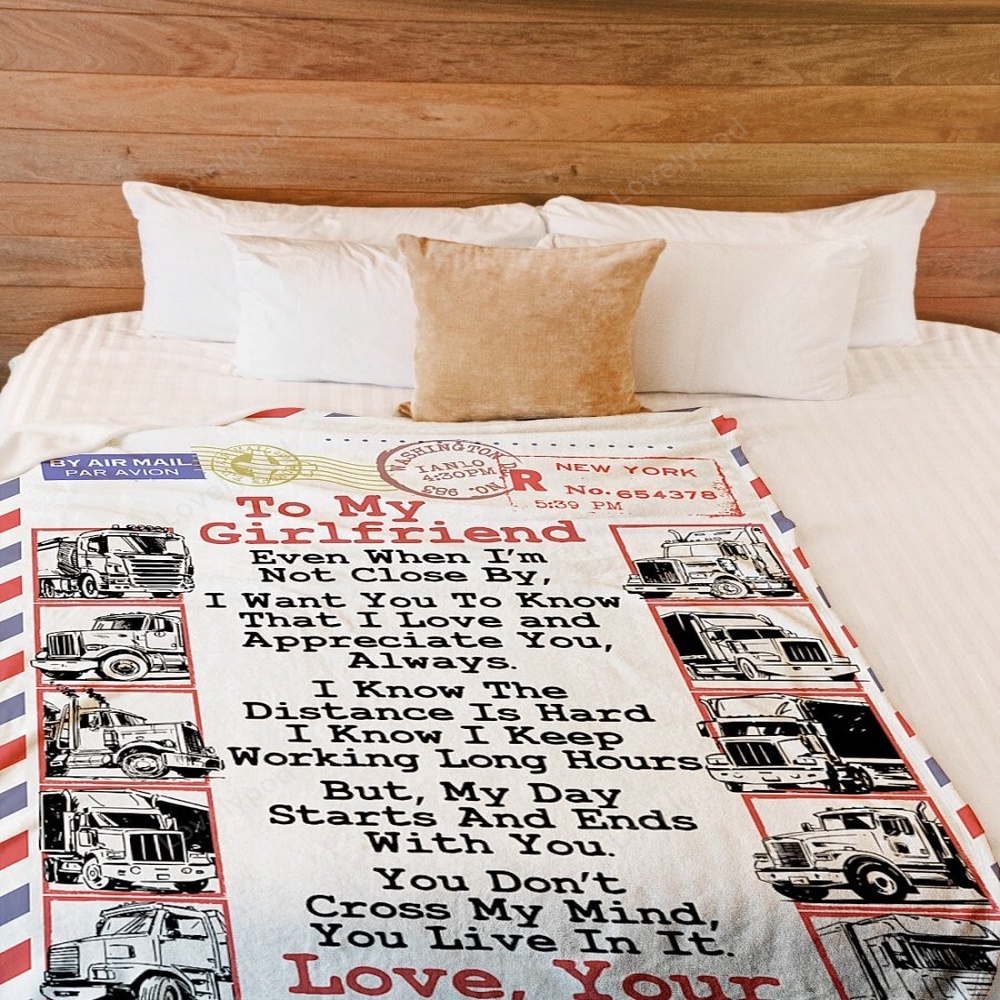 Lovelypod
Lovelypod
BY AIR MAIL
PAR AVION
WASHINGTON D
IAN10
4:30PM
NO. 983
R
NEW YORK
No. 654378
5:39 PM
To My
Girlfriend
Even When I'm
Not Close By,
I Want You To Know
That I Love and
Appreciate You,
Always.
I Know The
Distance Is Hard
I Know I Keep
Working Long Hours
But, My Day
Starts And Ends
With You.
You Don't
Cross My Mind,
You Live In It.
Love, Your